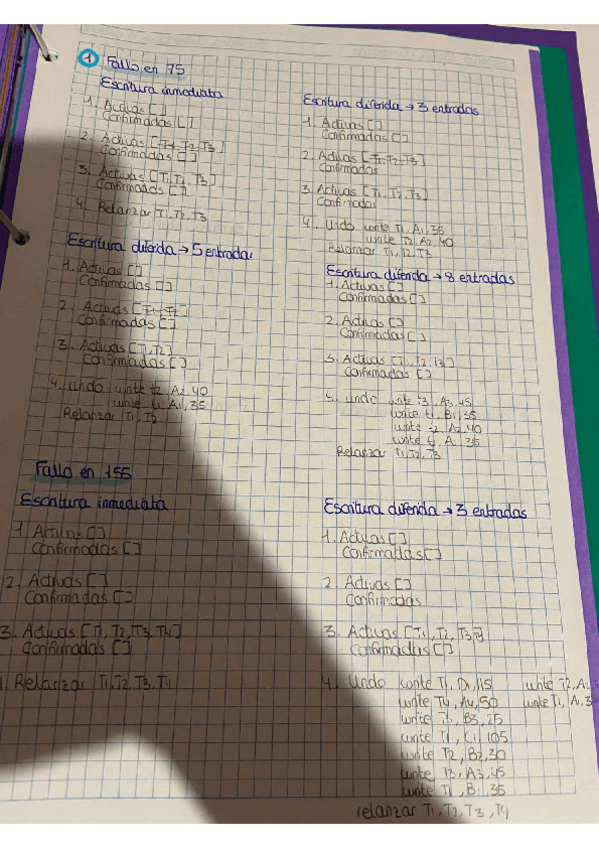 1 Fallo en 75
Escritura inmediata
1. Activas []
Confirmadas []
2. Activas [T1, T2, T3]
Confirmadas []
3. Activas [T1, T2, T3]
Confirmaads []
4. Relanzar T1, T2, T3
Escritura diferida → 5 entradas
1. Activas []
Confirmadas []
2. Activas [T1, T2]
Confirmadas []
3. Activas [T1, T2]
Confirmadas []
4. undo write t2, A2, 40
write t1, A1, 35
Relanzar T1, T2
Escritura diferida → 3 entradas
1. Activas []
Confirmadas []
2. Activas [T1, T2, T3]
Confirmadas
3. Activas [T1, T2, T3]
Confirmadas
4. Undo write T1, A1, 35
write T2, A2, 40
Relanzar T1, T2, T3
Escritura diferida → 8 entradas
1. Activas []
Confirmadas []
2. Activas []
Confirmadas []
3. Activas [T1, T2, T3]
Confirmadas []
undo write t3, A3, 45
write t1, B1, 35
write t2, A2, 40
write t1, A1, 35
Relanzar T1, T2, T3
Fallo en 155
Escritura inmediata
1. Activas []
Confirmadas []
2. Activas []
Confirmadas []
3. Activas [T1, T2, T3, T4]
Confirmadas []
Relanzar T1, T2, T3, T4
Escritura diferida → 3 entradas
1. Activas []
Confirmadas []
2. Activas []
Confirmadas
3. Activas [T1, T2, T3
Confirmadas []
4. Undo write T1, D1, 15 write T2, A2,
write T4, A4, 50 write T1, A1, 3
write T3, B3, 25
write T1, C1, 105
write T2, B2, 30
write T3, A3, 45
write T1, B1, 35
relanzar T1, T2, T3, T4